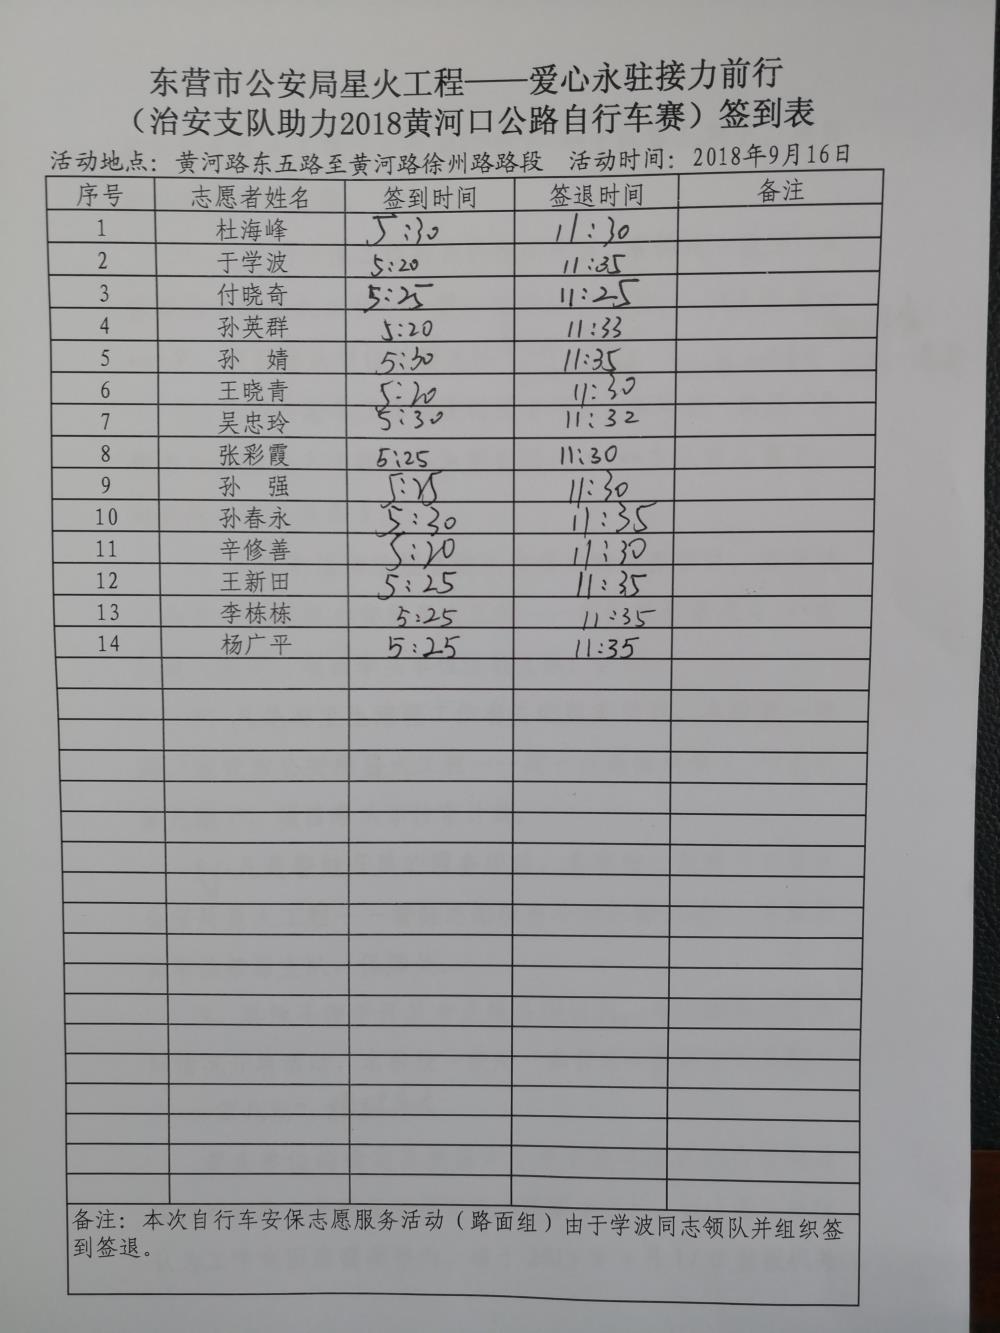 东营市公安局星火工程——爱心永驻接力前行
（治安支队助力2018黄河口公路自行车赛）签到表
活动地点：黄河路东五路至黄河路徐州路路段 活动时间：2018年9月16日
序号 志愿者姓名 签到时间 签退时间 备注
1 杜海峰 5:30 11:30
2 于学波 5:20 11:35
3 付晓奇 5:25 11:25
4 孙英群 5:20 11:33
5 孙 婧 5:30 11:35
6 王晓青 5:20 11:30
7 吴忠玲 5:30 11:32
8 张彩霞 5:25 11:30
9 孙 强 5:25 11:30
10 孙春永 5:30 11:35
11 辛修善 5:20 11:30
12 王新田 5:25 11:35
13 李栋栋 5:25 11:35
14 杨广平 5:25 11:35
备注：本次自行车安保志愿服务活动（路面组）由于学波同志领队并组织签
到签退。